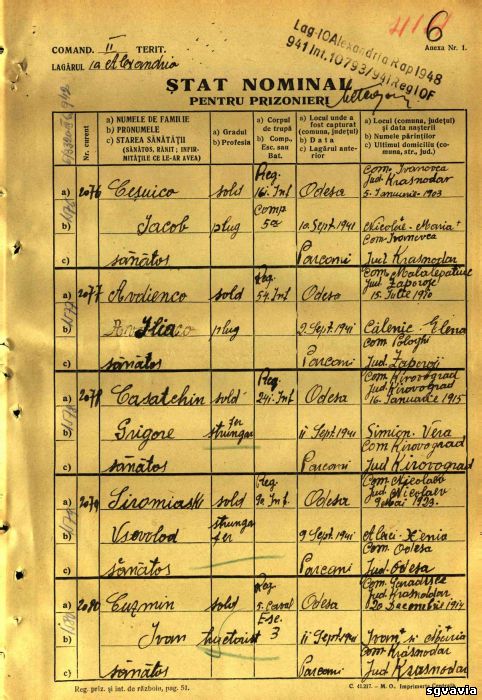 416
6
Lag-10 Alexandria Rap 1948
941 Int. 10793/941 Reg I OF
COMAND. II TERIT.
Anexa Nr. 1.
LAGĂRUL 10 Alexandria
STAT NOMINAL
PENTRU PRIZONIERI
Nr. curent
a) NUMELE DE FAMILIE
b) PRONUMELE
c) STAREA SĂNĂTĂȚII
(SĂNĂTOS, RĂNIT; INFIR-
MITĂȚILE CE LE-AR AVEA)
a) Gradul
b) Profesia
a) Corpul
de trupă
b) Comp.,
Esc. sau
Bat.
a) Locul unde a
fost capturat
(comuna, județul)
b) Data
c) Lagărul ante-
rior
a) Locul
(comuna, județul)
și data nașterii
b) Numele părinților
c) Ultimul domiciliu (co-
muna, str., jud.)
a) 2076 Cesuico sold Reg. 16. Inf Odesa Com. Ivanovca
Jud. Krasnodar
5 Ianuarie 1903
b) Iacob plug Comp 5a 10 Sept. 1941 Nicolae + Maria +
c) sănătos Parcani Com. Ivanovca
Jud Krasnodar
a) 2077 Avdienco sold Reg. 54. Inf Odesa
Jud. Zaporoje
15. Iulie 1910
b) Ilia plug 2. Sept. 1941 Călenic - Elena
c) sănătos Parcani Com. Pologhi
Jud. Zaporoji
a) 2078 Casatchin sold Reg. 241. Inf Odesa Com. Kirovograd
Jud. Kirovograd
16. Ianuarie 1915
b) Grigore strungar fer 11 Sept. 1941 Simion - Vera
c) sănătos Parcani Com. Kirovograd
Jud Kirovograd
a) 2079 Siromiaski sold Reg Inf. Odesa Com. Nicolaev
Jud. Nicolaev
9 Mai 1923.
b) Vsevolod strungar fer 9 Sept. 1941 Xenia
c) sănătos Parcani Com. Odesa
Jud. Odesa
a) 2080 Cuzmin sold Reg. 5. Caval Odesa
Jud. Krasnodar
20 Decembrie 1914
b) Ivan Esc. 3 11 Sept. 1941 Ivan + si Maria
c) sănătos Parcani Com. Krasnodar
Jud Krasnodar
Reg. priz. și int. de războiu, pag. 51.
C. 41.217. - M. O., Imprimeria Centrală
sgvavia